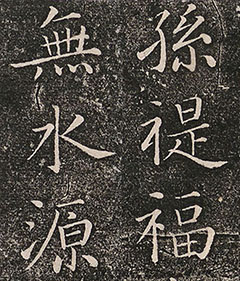 孫禔福
無水源